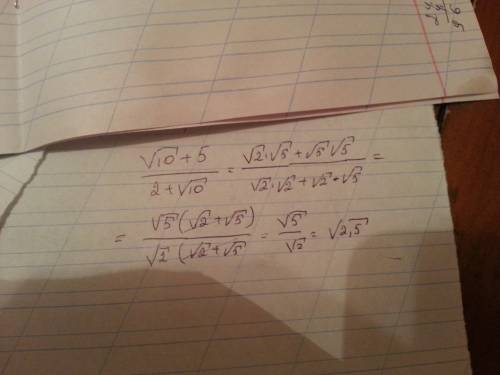 (√10 + 5)/(2 + √10) = (√2·√5 + √5 √5)/(√2·√2 + √2·√5) =
= (√5 (√2 + √5))/(√2 (√2 + √5) = √5/√2 = √2,5